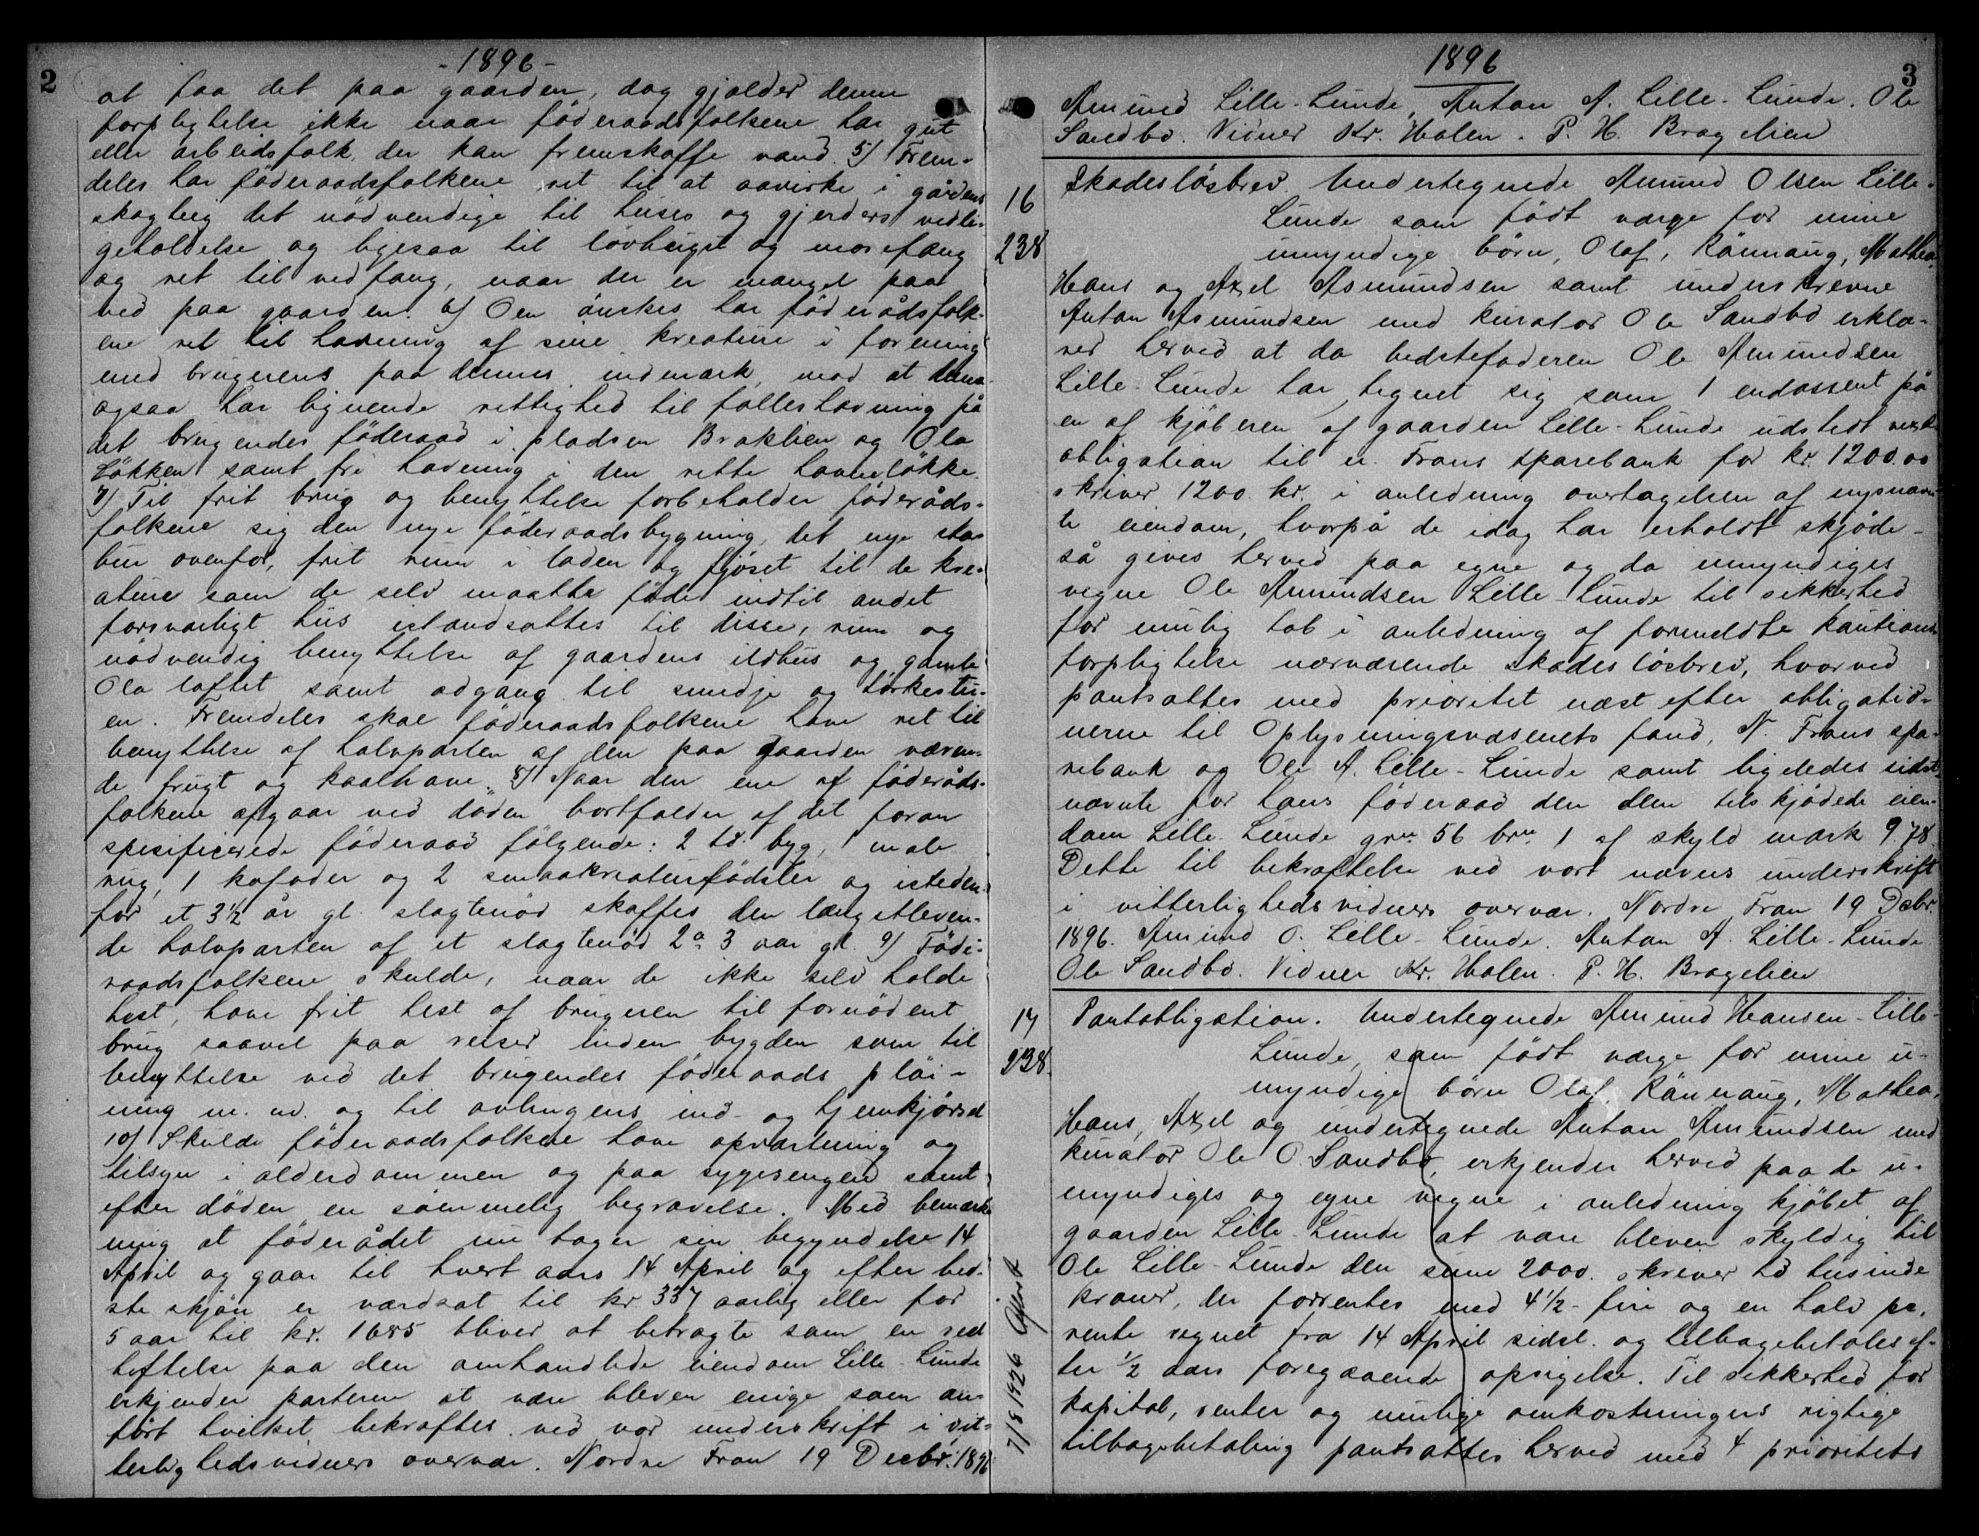 2
- 1896 -
at faa det paa gaarden, dog gjælder denne
forpligtelse ikke naar föderaadsfolkene har gut
eller arbeidsfolk der kan fremskaffe vand. 5) Frem-
deles har föderaadsfolkene ret til at avirke i gårdens
skogveig det nödvendige til huses og gjerders vedli-
geholdelse og ligesaa til lövhuget og mosefang
og ret til vedfang, naar der er mangel paa
ved paa gaarden. 6) Om önskes har föderådsfolk-
ene ret til havning af sine kreature i forening
med brugerens paa dennes indmark mod at denne
ogsaa har lignende rettighed til fælleshavning på
det brugendes föderaad i pladsen Braklien og Ola
Løkken samt fri havning i den rette havneløkke.
7) Til frit brug og benyttelse forbeholder föderåds-
folkene sig den nye föderaadsbygning, det nye sta-
bur ovenfor, frit rum i laden og fjöset til de kre-
ature som de selv maatte föde indtil andet
forsvarligt hus istandsættes til disse, rum og
nödvendig benyttelse af gaardens ildhus og gamle
Ola loftet samt adgang til smedje og törkestu-
en. Fremdeles skal föderaadsfolkene have ret til
benyttelse af halvparten af den paa gaarden væren-
de frugt og kaalhave. 8) Naar den ene af föderåds-
folkene afgaar ved döden bortfalder af det foran
spesificerede föderaad fölgende: 2 td. byg, 1 male
rug, 1 kofoder og 2 smaakreaturfödsler og isteden-
for et 3½ år gl. slagtenöd skaffes den længstleven-
de halvparten af et slagtenöd 2 a 3 aar gl. 9) Föde-
raadsfolkene skulde, naar de ikke selv holde
hest, have frit hest af brugeren til fornödent
brug saavel paa reiser inden bygden som til
benyttelse ved det brugendes föderaads plöi-
ning m. m. og til avlingens ind- og hjemkjörsel
10) Skulde föderaadsfolkene have opvartning og
tilsyn i alderdommen og paa sygesengen samt
efter döden en sömmelig begravelse. Med bemærk-
ning at föderådet nu tager sin begyndelse 14
April og gaar til hvert aars 14 April og efter bed-
ste skjön er værdsat til kr. 337 aarlig eller for
5 aar til kr. 1685 bliver at betragte som en ved
heftelse paa den omhandlede eiendom Lille-Lunde
erkjender parterne at være bleven enige som an-
fört hvilket bekræftes ved vor underskrift i vit-
terlighedsvidners overvær. Nordre Fron 19 Decbr. 1896
3
1896
Amund Lille-Lunde, Anton A. Lille-Lunde. Ole
Sandbo. Vidner Kr. Holen. P. H. Bragelien
16
238
Skadeslösbrev. Undertegnede Amund Olsen Lille-
Lunde som födt værge for mine
umyndige börn, Olof, Rönnaug, Mathea,
Hans og Axel Asmundsen samt underskrevne
Anton Asmundsen med kurator Ole Sandbo erklæ-
rer herved at da bedstefaderen Ole Amundsen
Lille-Lunde har tegnet sig som 1 endossent på
en af kjöberen af gaarden Lille-Lunde udstedt vexel-
obligation til n. Frons sparebank for kr. 1200.00
skriver 1200 kr. i anledning overtagelsen af nysnævn-
te eiendom, hvorpå de idag har erholdt skjöde -
så gives herved paa egne og da umyndiges
vegne Ole Amundsen Lille Lunde til sikkerhed
for mulig tab i anledning af formeldte kautions-
forpligtelse nærværende skadeslösbrev, hvorved
pantsættes med prioritet næst efter obligatio-
nerne til Oplysningsvæsenets fond, N. Frons spa-
rebank og Ole A. Lille-Lunde samt ligeledes sidst
nævnte for hans föderaad den dem tilskjödede eien-
dom Lille-Lunde grn. 56 brn. 1 af skyld mark 9.78.
Dette til bekræftelse ved vort navns underskrift
i vitterlighedsvidners overvær. Nordre Fron 19 Debr.
1896. Amund O. Lille-Lunde. Anton A. Lille-Lunde
Ole Sandbo. Vidner Kr. Holen. P. H. Bragelien
17
238.
Pantobligation. Undertegnede Amund Hansen-Lille-
Lunde, som födt værge for mine u-
myndige börn Olaf, Rönnaug, Mathea,
Hans, Axel og undertegnede Anton Amundsen med
kurator Ole O. Sandbo, erkjender herved paa de u-
myndiges og egne vegne i anledning kjöbet af
gaarden Lille-Lunde at være bleven skyldig til
Ole Lille-Lunde den sum 2000 skriver to tusinde
kroner, der forrentes med 4½ - fire og en halv pc.
rente regnet fra 14 April sidst. og tilbagebetales ef-
ter ½ aars foregaaende opsigelse. Til sikkerhed for
kapital, renter og mulige omkostningers rigtige
tilbagebetaling pantsættes herved med 4 prioritets
7/8 1926